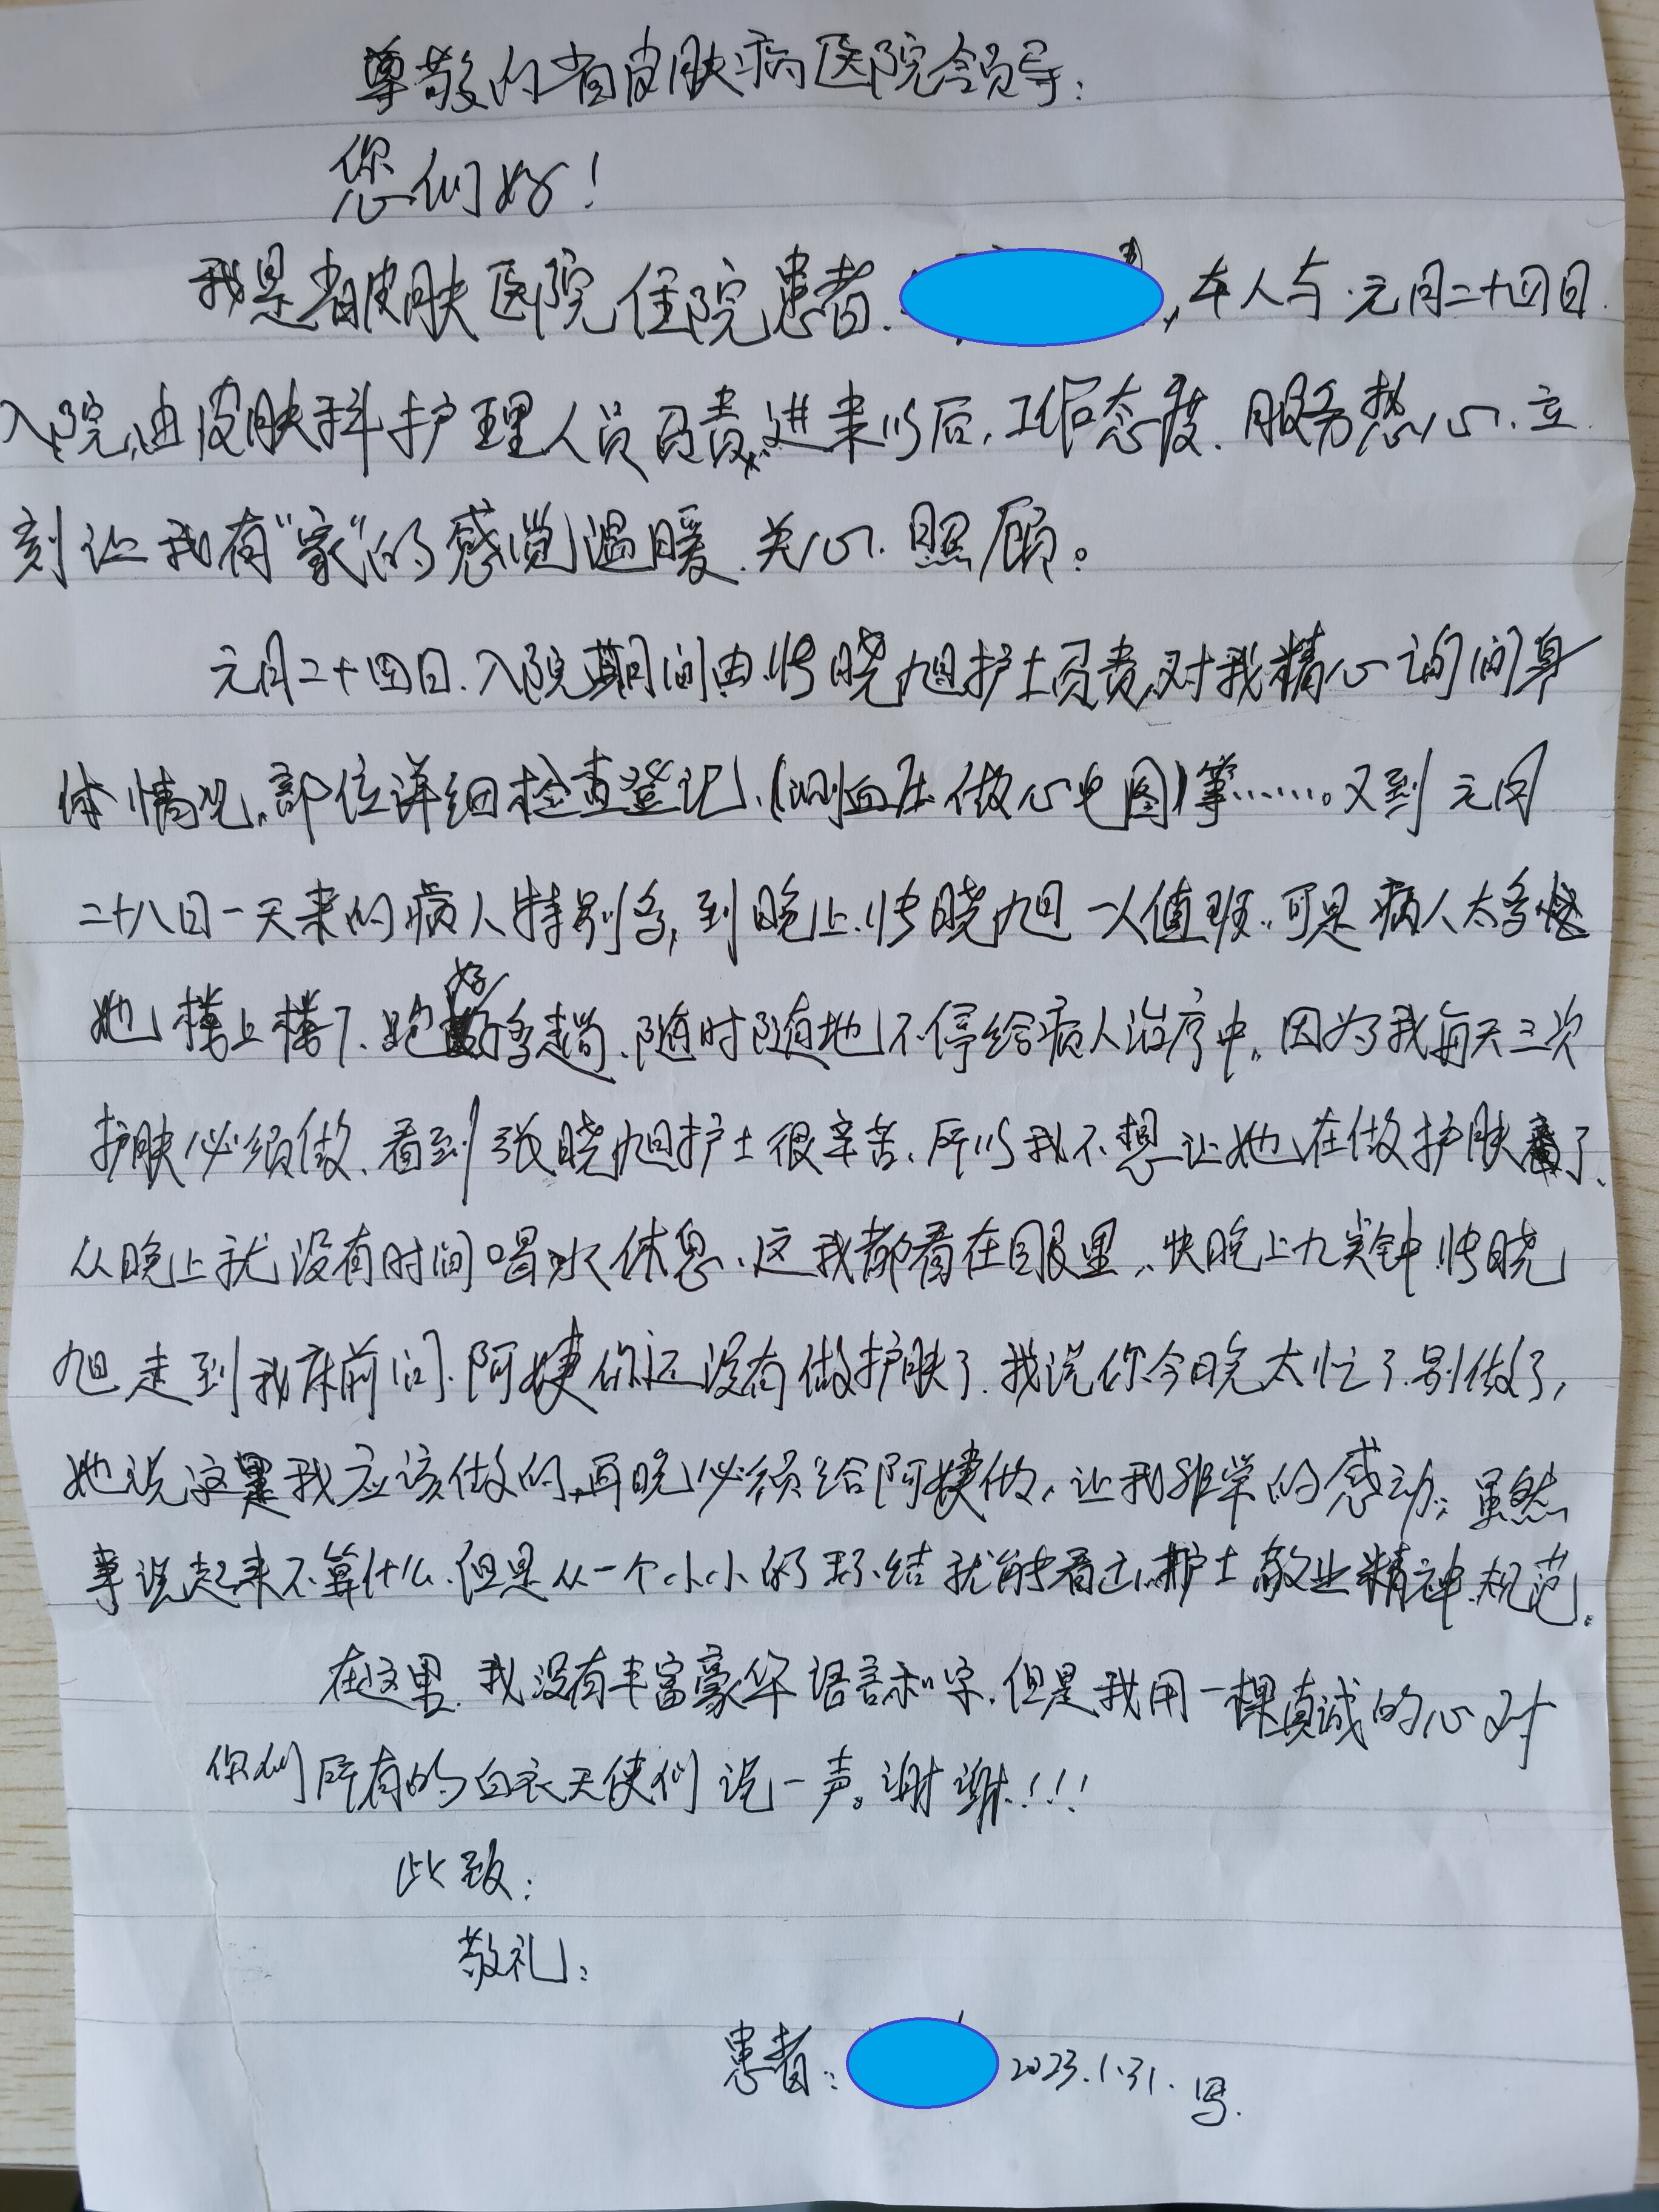 尊敬的省皮肤病医院领导：
您们好！
我是省皮肤医院住院患者.，本人与元月二十四日.
入院，由皮肤科护理人员负责，进来以后，工作态度.服务热心.立
刻让我有“家”的感觉温暖.关心.照顾。
元月二十四日.入院期间由张晓旭护士负责，对我精心询问身
体情况，部位详细检查登记、（测血压做心电图）等……。又到元月
二十八日一天来的病人特别多，到晚上张晓旭一人值班，可是病人太多
她楼上楼下.跑好多趟、随时随地不停给病人治疗中。因为我每天三次
护肤必须做、看到张晓旭护士很辛苦、所以我不想让她在做护肤了、
从晚上就没有时间喝水休息、这我都看在眼里，快晚上九点钟张晓
旭走到我床前问.阿姨你还没有做护肤了.我说你今晚太忙了.别做了，
她说这是我应该做的，再晚必须给阿姨做、让我非常的感动；虽然
事说起来不算什么.但是从一个小小的环结就能看出护士敬业精神.规范。
在这里.我没有丰富豪华语言和字.但是我用一棵真诚的心对
你们所有的白衣天使们说一声。谢谢！！！
此致：
敬礼：
患者：2023.1.31.写.